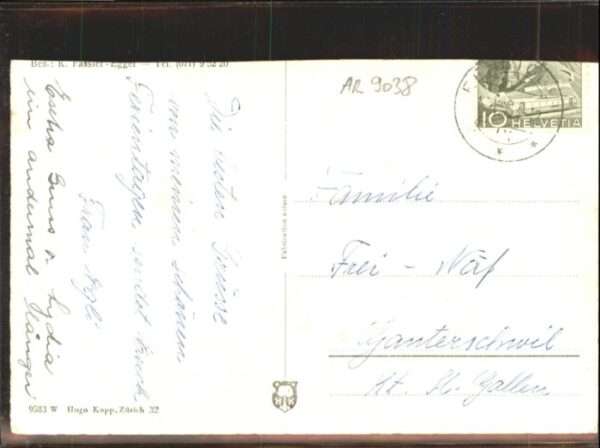 Bes.: K. Fässler-Egger — Tel. (071) 9 32 20
AR 9038
10 HELVETIA
Die besten Grüsse
von meinen schönen
Ferientagen sendet Euch
Frau Egli
Extra Gruss v. Lydia
ein andermal länger
Familie
Frei - Näf
Ganterschwil
Kt. St. Gallen
9583 W Hugo Kopp, Zürich 32